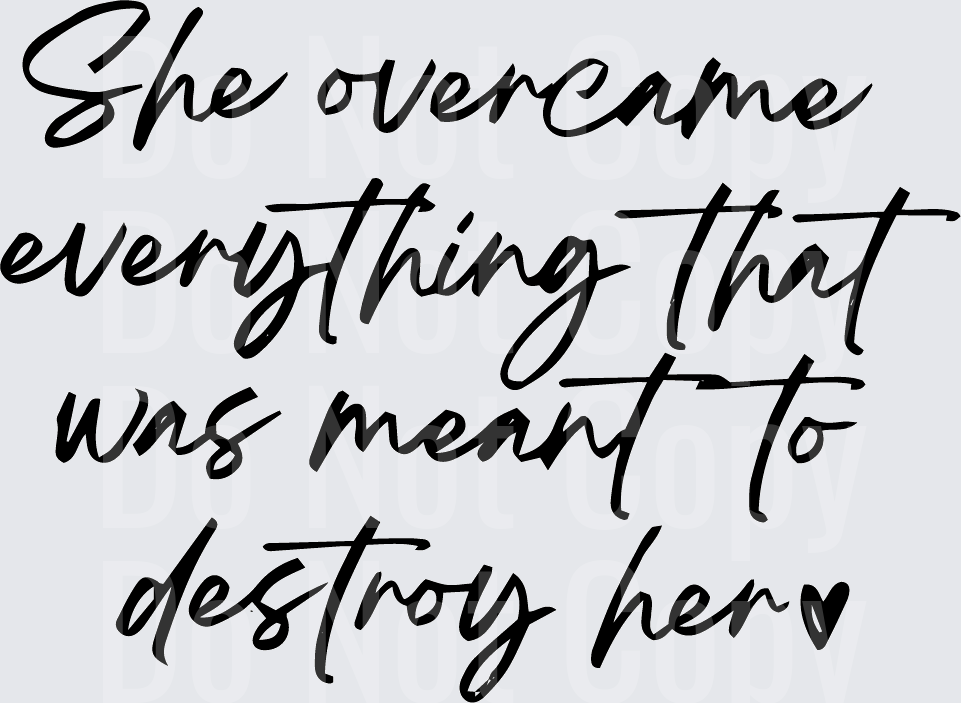 She overcame
everything that
was meant to
destroy her♥
Do Not Copy
Do Not Copy
Do Not Copy
Do Not Copy